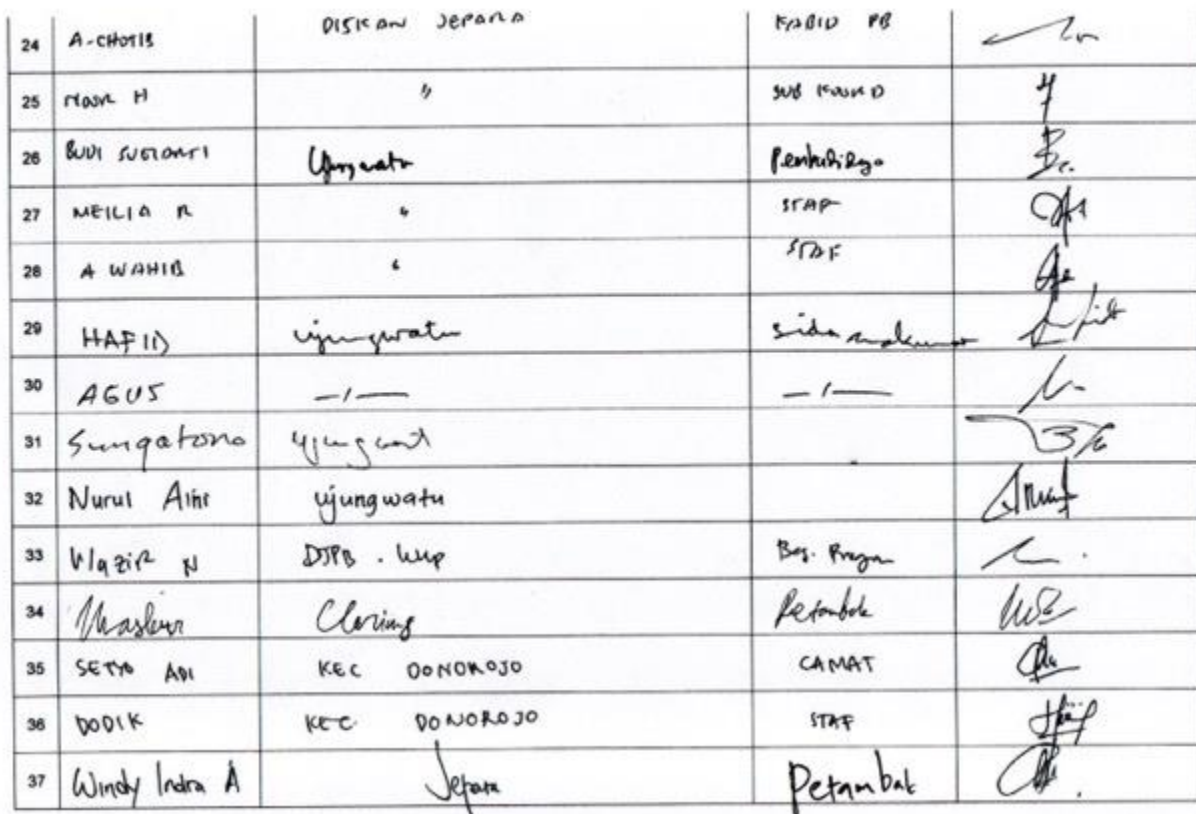 24 A-CHOTIB DISKAN JEPARA KABID PB
25 NOOR H " SUB KOORD
26 BUDI SUGIANTI Ujungwatu
27 MEILIA R " STAF
28 A WAHIB " STAF
29 HAFID ujungwatu
30 AGUS —/— —/—
31 Sungatono ujungwat
32 Nurul Aini ujungwatu
33 Wazir N DJPB . KKP
34 Maskur Clering Petambak
35 SETYO ADI KEC DONOROJO CAMAT
36 DODIK KEC DONOROJO STAF
37 Windy Indra A Jepara Petambak